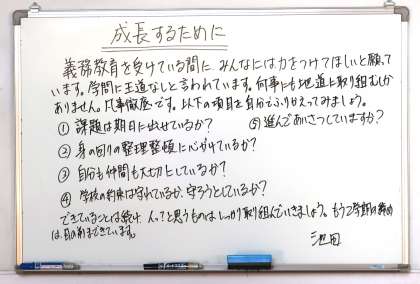 成長するために
義務教育を受けている間に、みんなには力をつけてほしいと願って
います。学問に王道なしと言われています。何事にも地道に取り組むしか
ありません。凡事徹底です。以下の項目を自分でふりかえってみましょう。
① 課題は期日に出せているか?
⑤ 進んであいさつしていますか?
② 身の回りの整理整頓に心がけているか?
③ 自分も仲間も大切にしているか?
④ 学校の約束は守れているか、守ろうとしているか?
できていることは続け、んっと思うものはしっかり取り組んでいきましょう。もう2学期の締め
は、目の前まできています。
池田